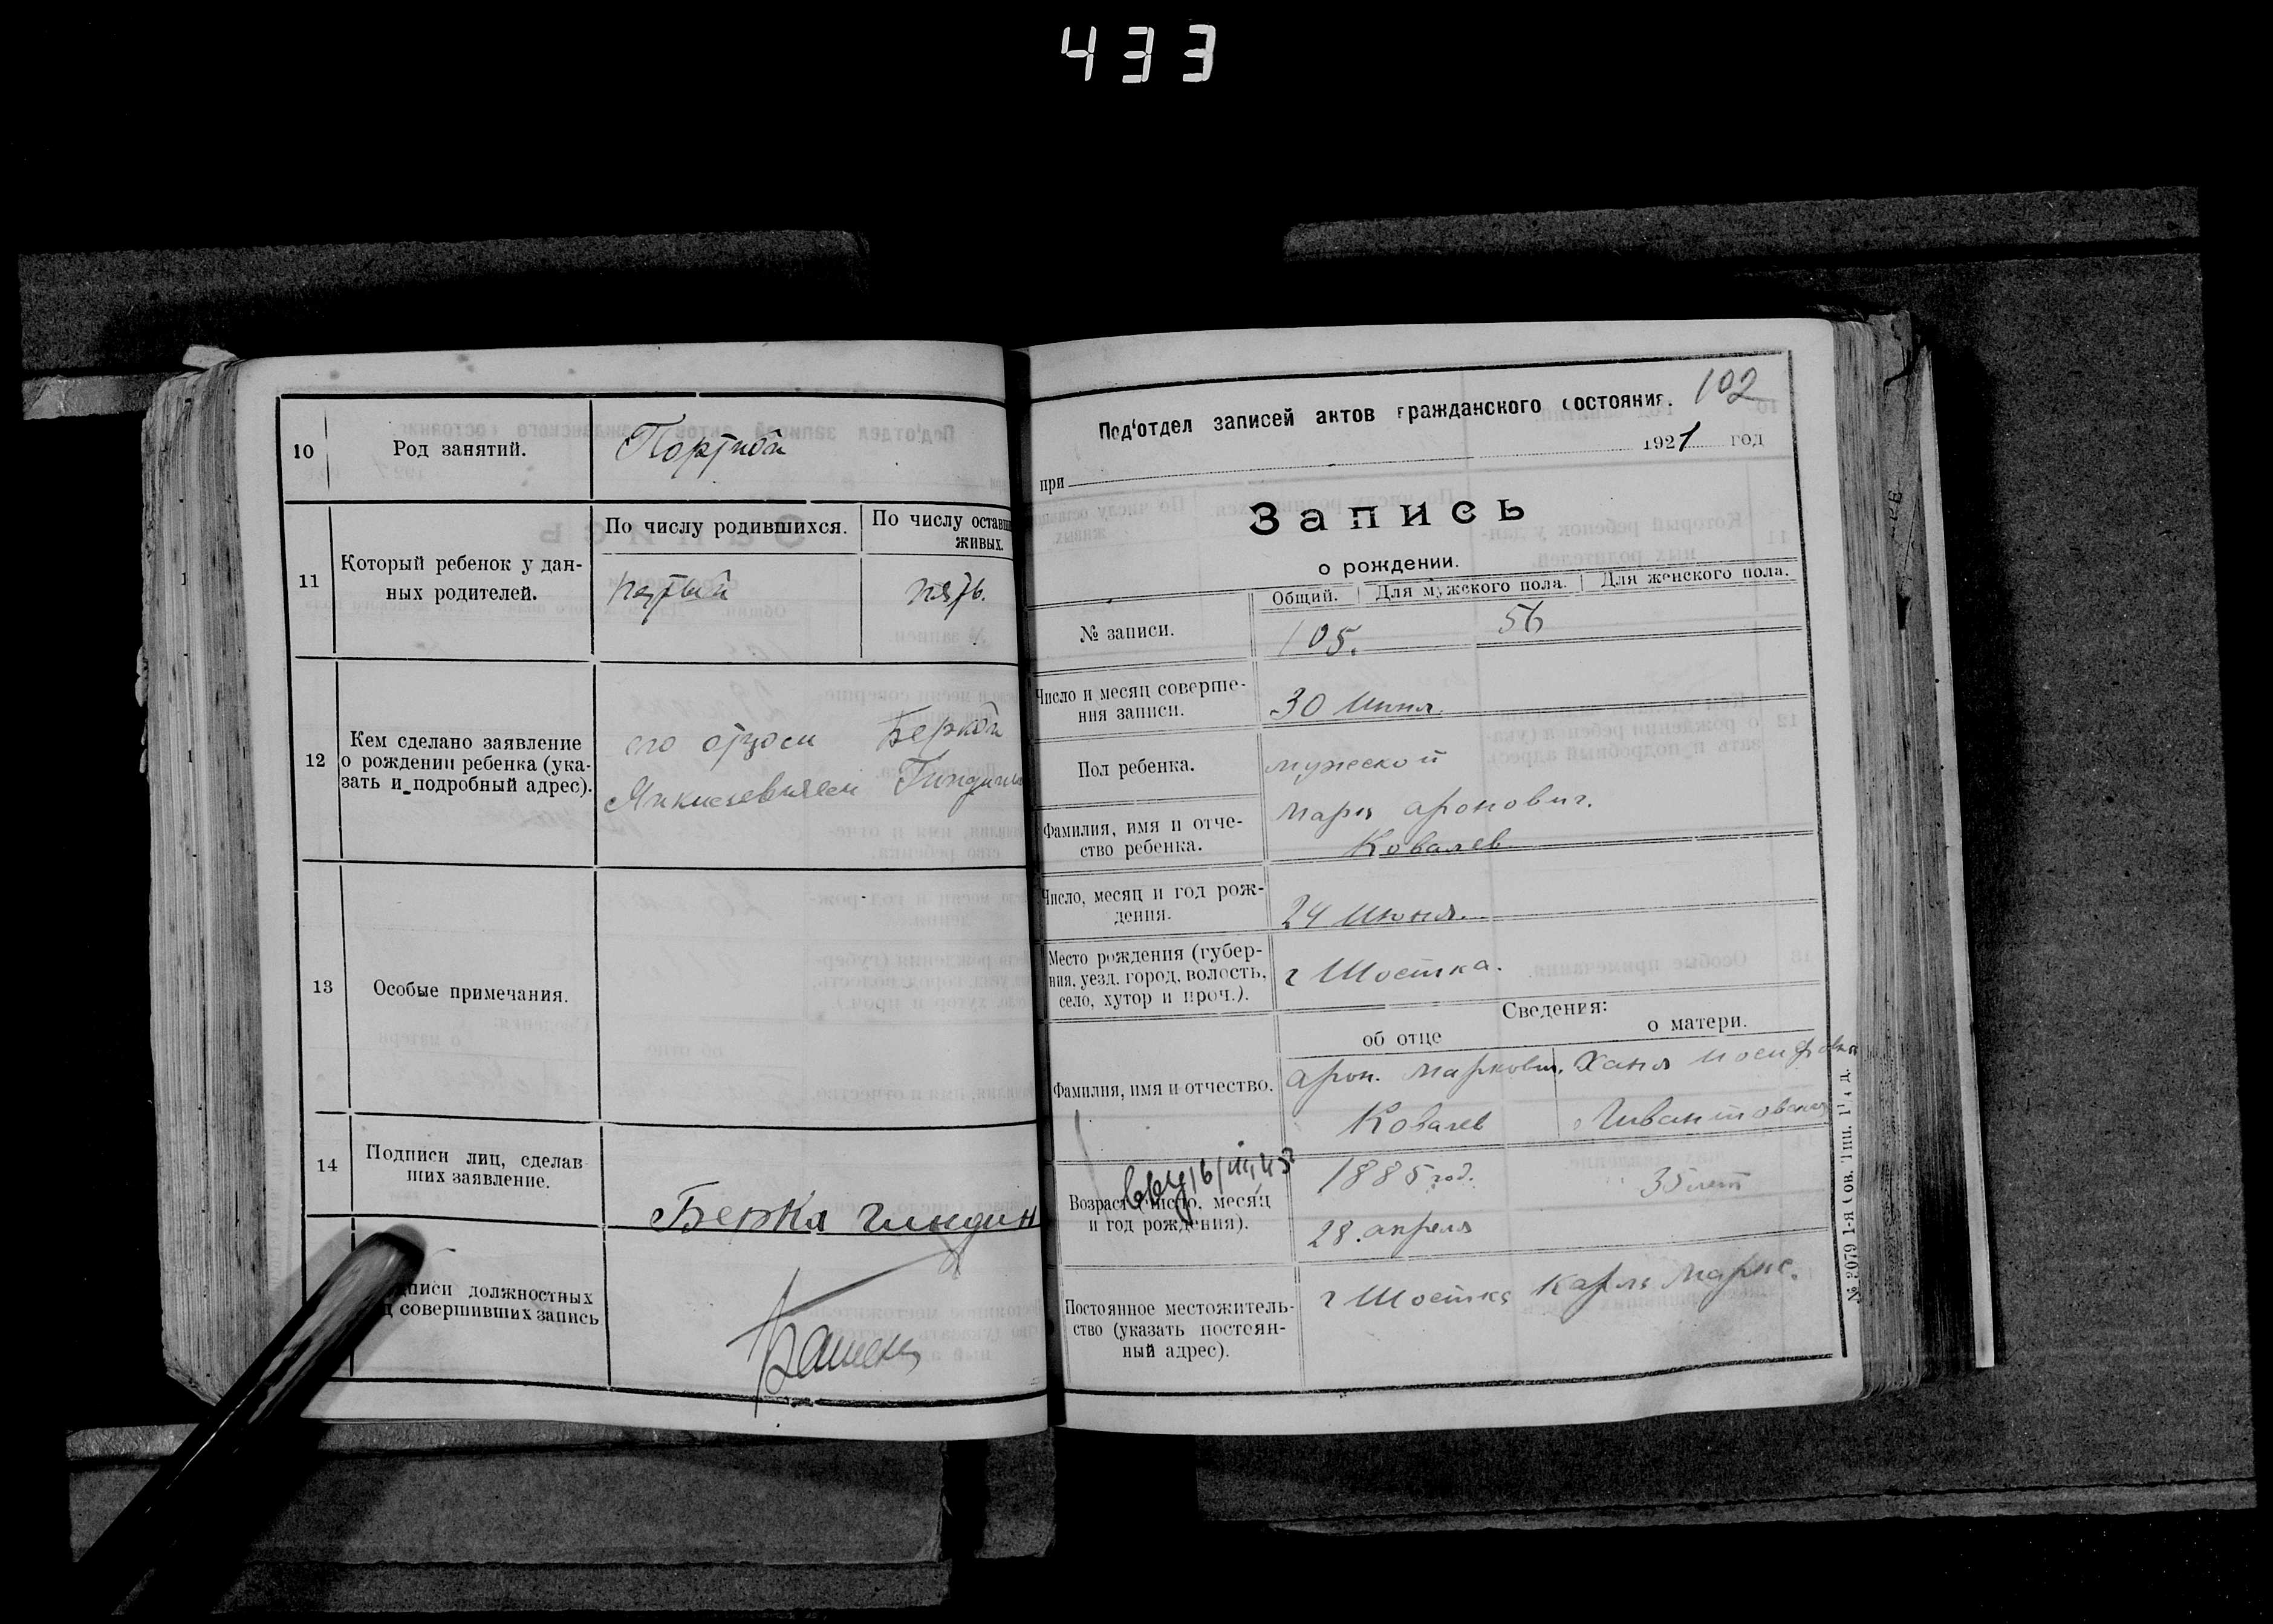 433
10
Род занятий.
Портной
11
Который ребенок у дан-
ных родителей.
По числу родившихся.
По числу оставш
живых.
пятый
пять.
12
Кем сделано заявление
о рождении ребенка (ука-
зать и подробный адрес).
его отцом Беркой
Гиндин
13
Особые примечания.
14
Подписи лиц, сделав
ших заявление.
Берка гиндин
писи должностных
совершивших запись
102
Под'отдел записей актов гражданского состояния.
при 1921 год
Запись
о рождении.
Общий. Для мужского пола. Для женского пола.
№ записи.
105. 56
Число и месяц соверше-
ния записи.
30 Июня.
Пол ребенка.
мужеской
Фамилия, имя и отче-
ство ребенка.
Марк Аронович.
Ковалев
Число, месяц и год рож-
дения.
24 Июня.
Место рождения (губер-
ния, уезд, город, волость,
село, хутор и проч.).
г Шостка.
Сведения:
об отце
о матери.
Фамилия, имя и отчество.
Арон. Маркович.
Ковалев
Хана Иосифовна
Возраст (число, месяц
и год рождения).
1885 год.
28. апреля
35 лет
Постоянное местожитель-
ство (указать постоян-
ный адрес).
г Шостка Карла Маркс.
№ 2079 1-я Сов. Тип.